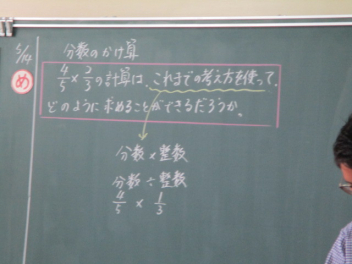 5/14
分数のかけ算
め
4/5×2/3の計算は、これまでの考え方を使って、
どのように求めることができるだろうか。
分数×整数
分数÷整数
4/5 × 1/3